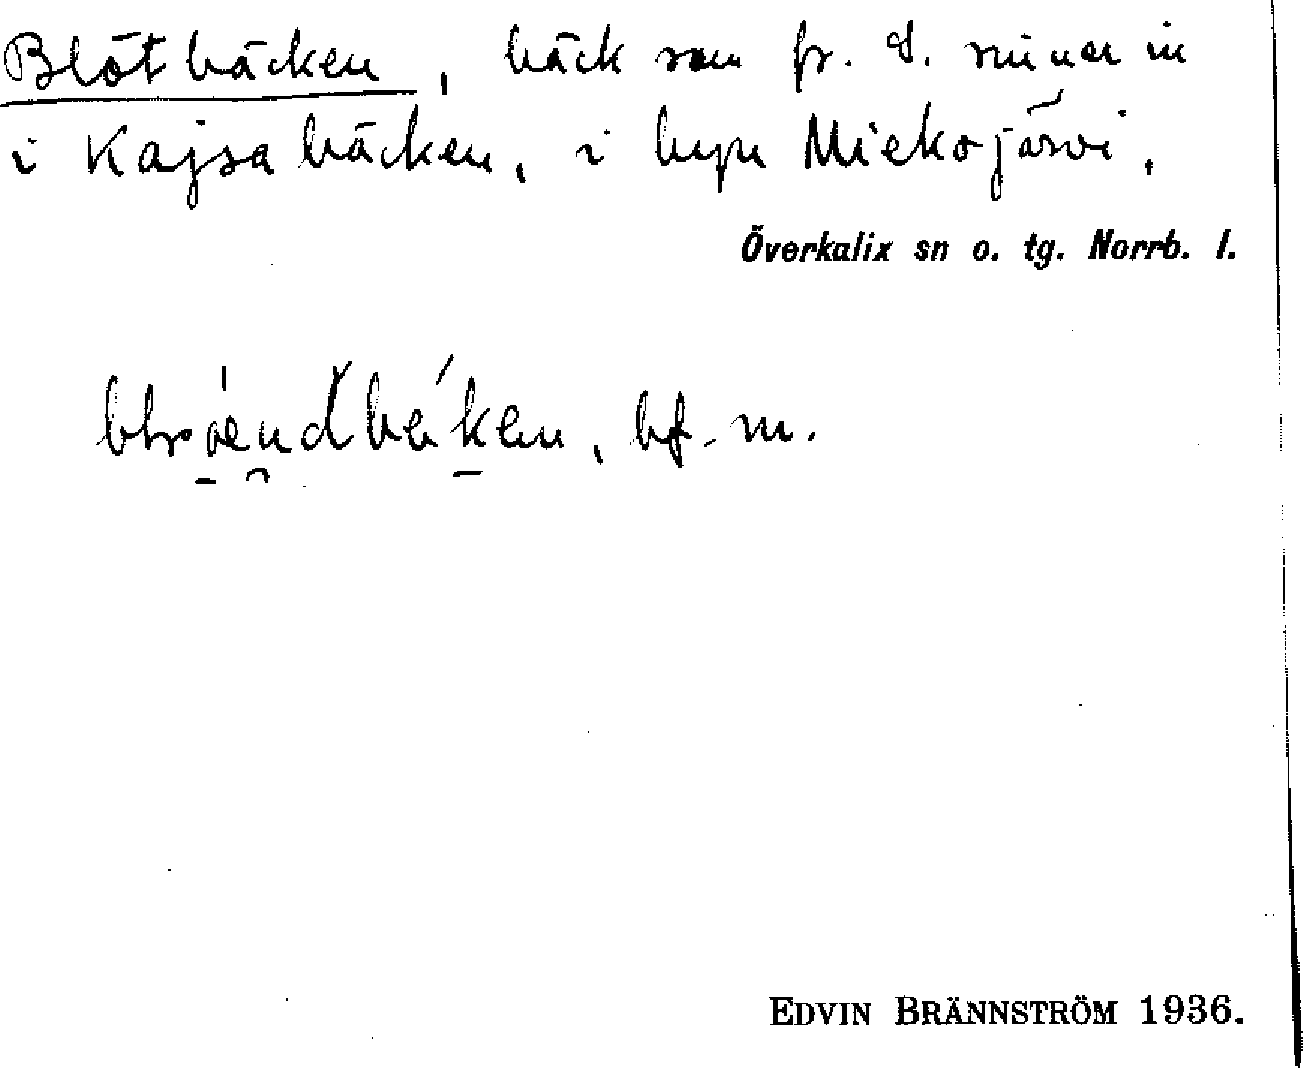 Blötbäcken, bäck som fr. S. rinner in
i Kajsabäcken, i byn Miekojärvi.
Överkalix sn o. tg. Norrb. l.
bf. m.
EDVIN BRÄNNSTRÖM 1936.